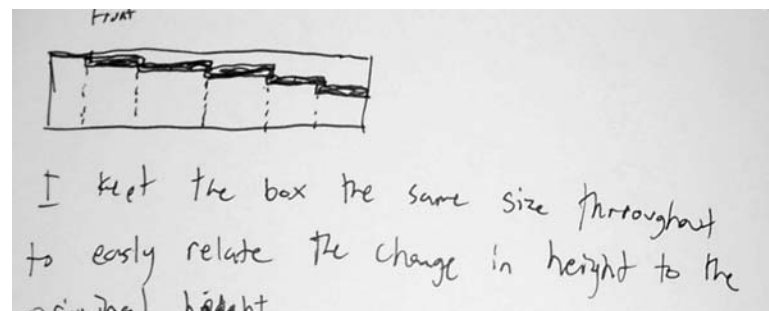 Front
I kept the box the same size throughout
to easly relate the change in height to the
original height